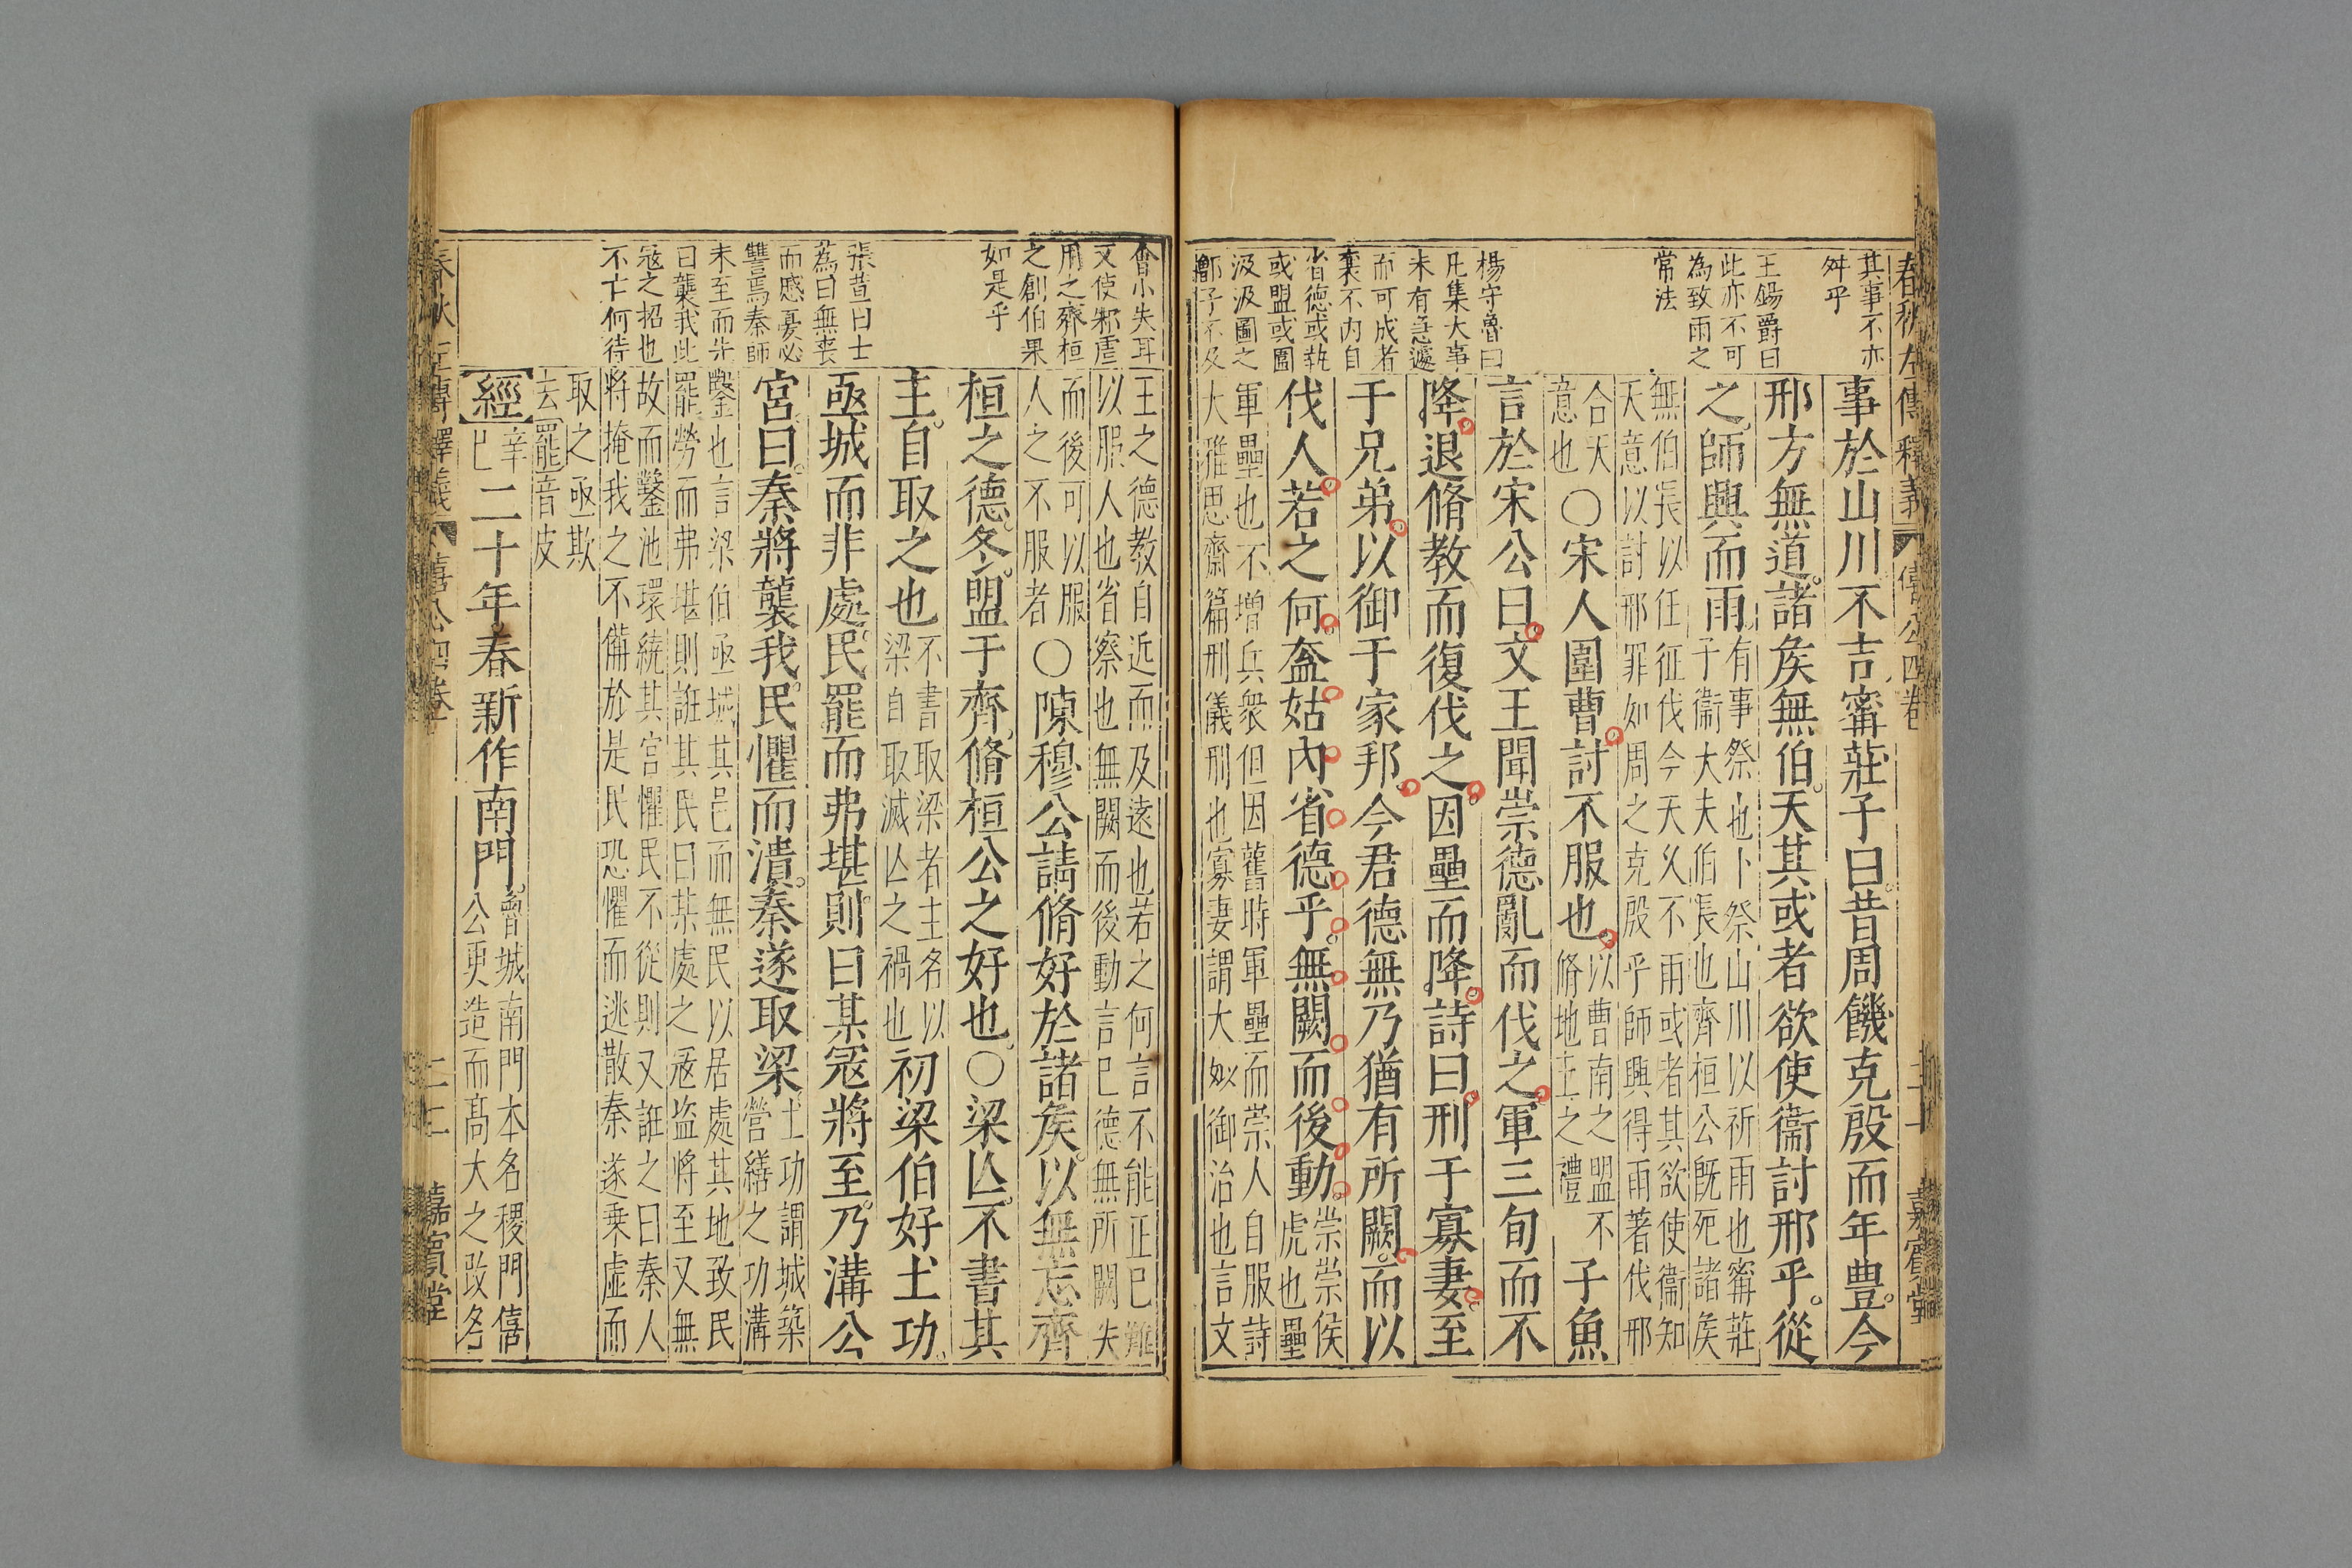 春秋左傳釋義 僖公四卷 二十一 嘉賓堂
其事不亦
舛乎
王錫爵曰
此亦不可
為致雨之
常法
楊守魯曰
凡集大事
未有急遽
而可成者
襄不內自
省德或執
或盟或圍
汲汲圖之
鄫子不及
事於山川不吉甯莊子曰昔周饑克殷而年豊今
邢方無道諸矦無伯天其或者欲使衞討邢乎從
之師興而雨有事祭也卜祭山川以祈雨也甯莊
子衞大夫伯長也齊桓公既死諸矦
無伯長以任征伐今天乆不雨或者其欲使衞知
天意以討邢罪如周之克殷乎師興得雨著伐邢
合天
意也○宋人圍曹討不服也以曹南之盟不
脩地主之禮子魚
言於宋公曰文王聞崇德亂而伐之軍三旬而不
降退脩教而復伐之因壘而降詩曰刑于寡妻至
于兄弟以御于家邦今君德無乃猶有所闕而以
伐人若之何盍姑內省德乎無闕而後動崇崇侯
虎也壘
軍壘也不增兵衆但因舊時軍壘而崇人自服詩
大雅思齋篇刑儀刑也寡妻謂大姒御治也言文
會小失耳
又使邾虐
用之齊桓
之創伯果
如是乎
張昔曰士
蒍曰無喪
而慼憂必
讐焉秦師
未至而先
曰襲我此
冦之招也
不亡何待
王之德教自近而及遠也若之何言不能正己難
以服人也省察也無闕而後動言己德無所闕失
而後可以服
人之不服者○陳穆公請脩好於諸矦以無忘齊
桓之德冬盟于齊脩桓公之好也○梁亾不書其
主自取之也不書取梁者主名以
梁自取滅亾之禍也初梁伯好土功
亟城而非處民罷而弗堪則曰某冦將至乃溝公
宮曰秦將襲我民懼而潰秦遂取梁土功謂城築
營繕之功溝
鑿也言梁伯亟城其邑而無民以居處其地致民
罷勞而弗堪則誑其民曰某處之冦盗將至又無
故而鑿池環繞其宮懼民不從則又誑之曰秦人
將掩我之不備於是民恐懼而逃散秦遂乗虛而
取之亟欺
去罷音皮
經辛
巳二十年春新作南門魯城南門本名稷門僖
公更造而髙大之改名
春秋左傳釋義 僖公四卷 二十二 嘉賓堂